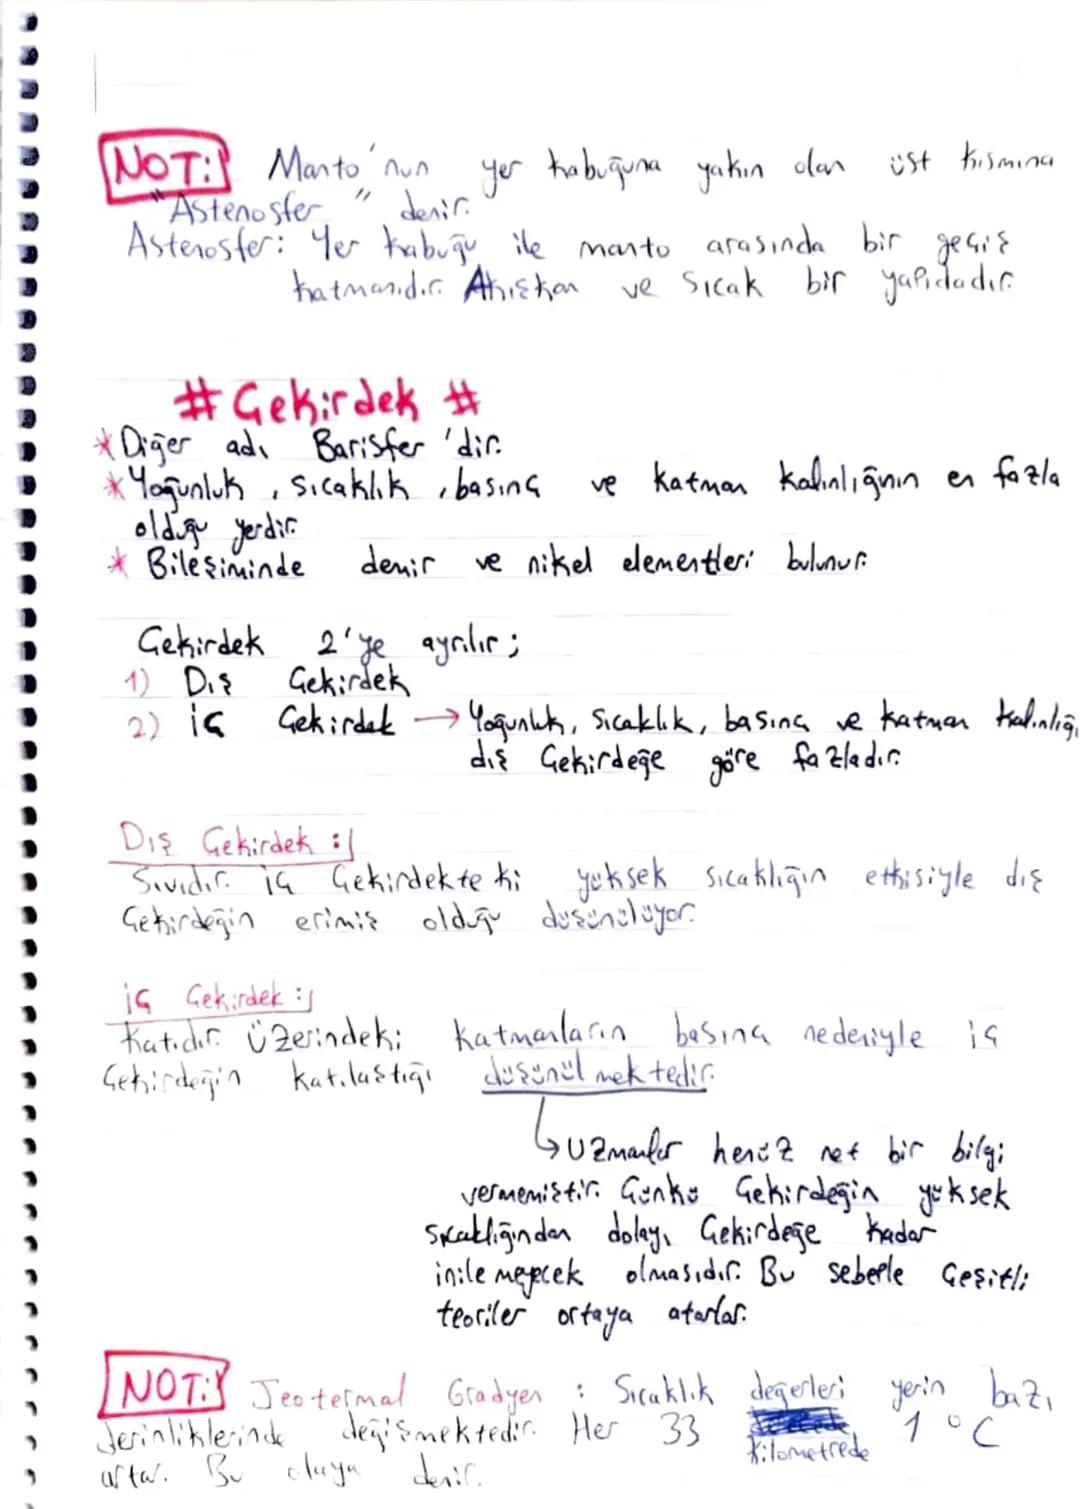 NOT: Manto'nun yer kabuğuna yakın olan üst kısmına
"Astenosfer" denir.
Astenosfer: Yer kabuğu ile manto arasında bir geçiş
katmanıdır. Akışkan ve sıcak bir yapıdadır.
# Çekirdek #
* Diğer adı Barisfer'dir.
* Yoğunluk, sıcaklık, basınç ve katman kalınlığının en fazla
olduğu yerdir.
* Bileşiminde demir ve nikel elementleri bulunur.
Çekirdek 2'ye ayrılır;
1) Dış Çekirdek
2) İç Çekirdek → Yoğunluk, sıcaklık, basınç ve katman kalınlığı
dış Çekirdeğe göre fazladır.
Dış Çekirdek :
Sıvıdır. İç Çekirdekteki yüksek sıcaklığın etkisiyle dış
Çekirdeğin erimiş olduğu düşünülüyor.
İç Çekirdek :
Katıdır. Üzerindeki katmanların basınç nedeniyle iç
Çekirdeğin katılaştığı düşünülmektedir.
Uzmanlar henüz net bir bilgi
vermemiştir. Çünkü Çekirdeğin yüksek
sıcaklığından dolayı Çekirdeğe kadar
inilemeyecek olmasıdır. Bu sebeple Çeşitli
teoriler ortaya atarlar.
NOT: Jeotermal Gradyen : Sıcaklık değerleri yerin bazı
derinliklerinde değişmektedir. Her 33 kilometrede 1 °C
artar. Bu olaya denir.